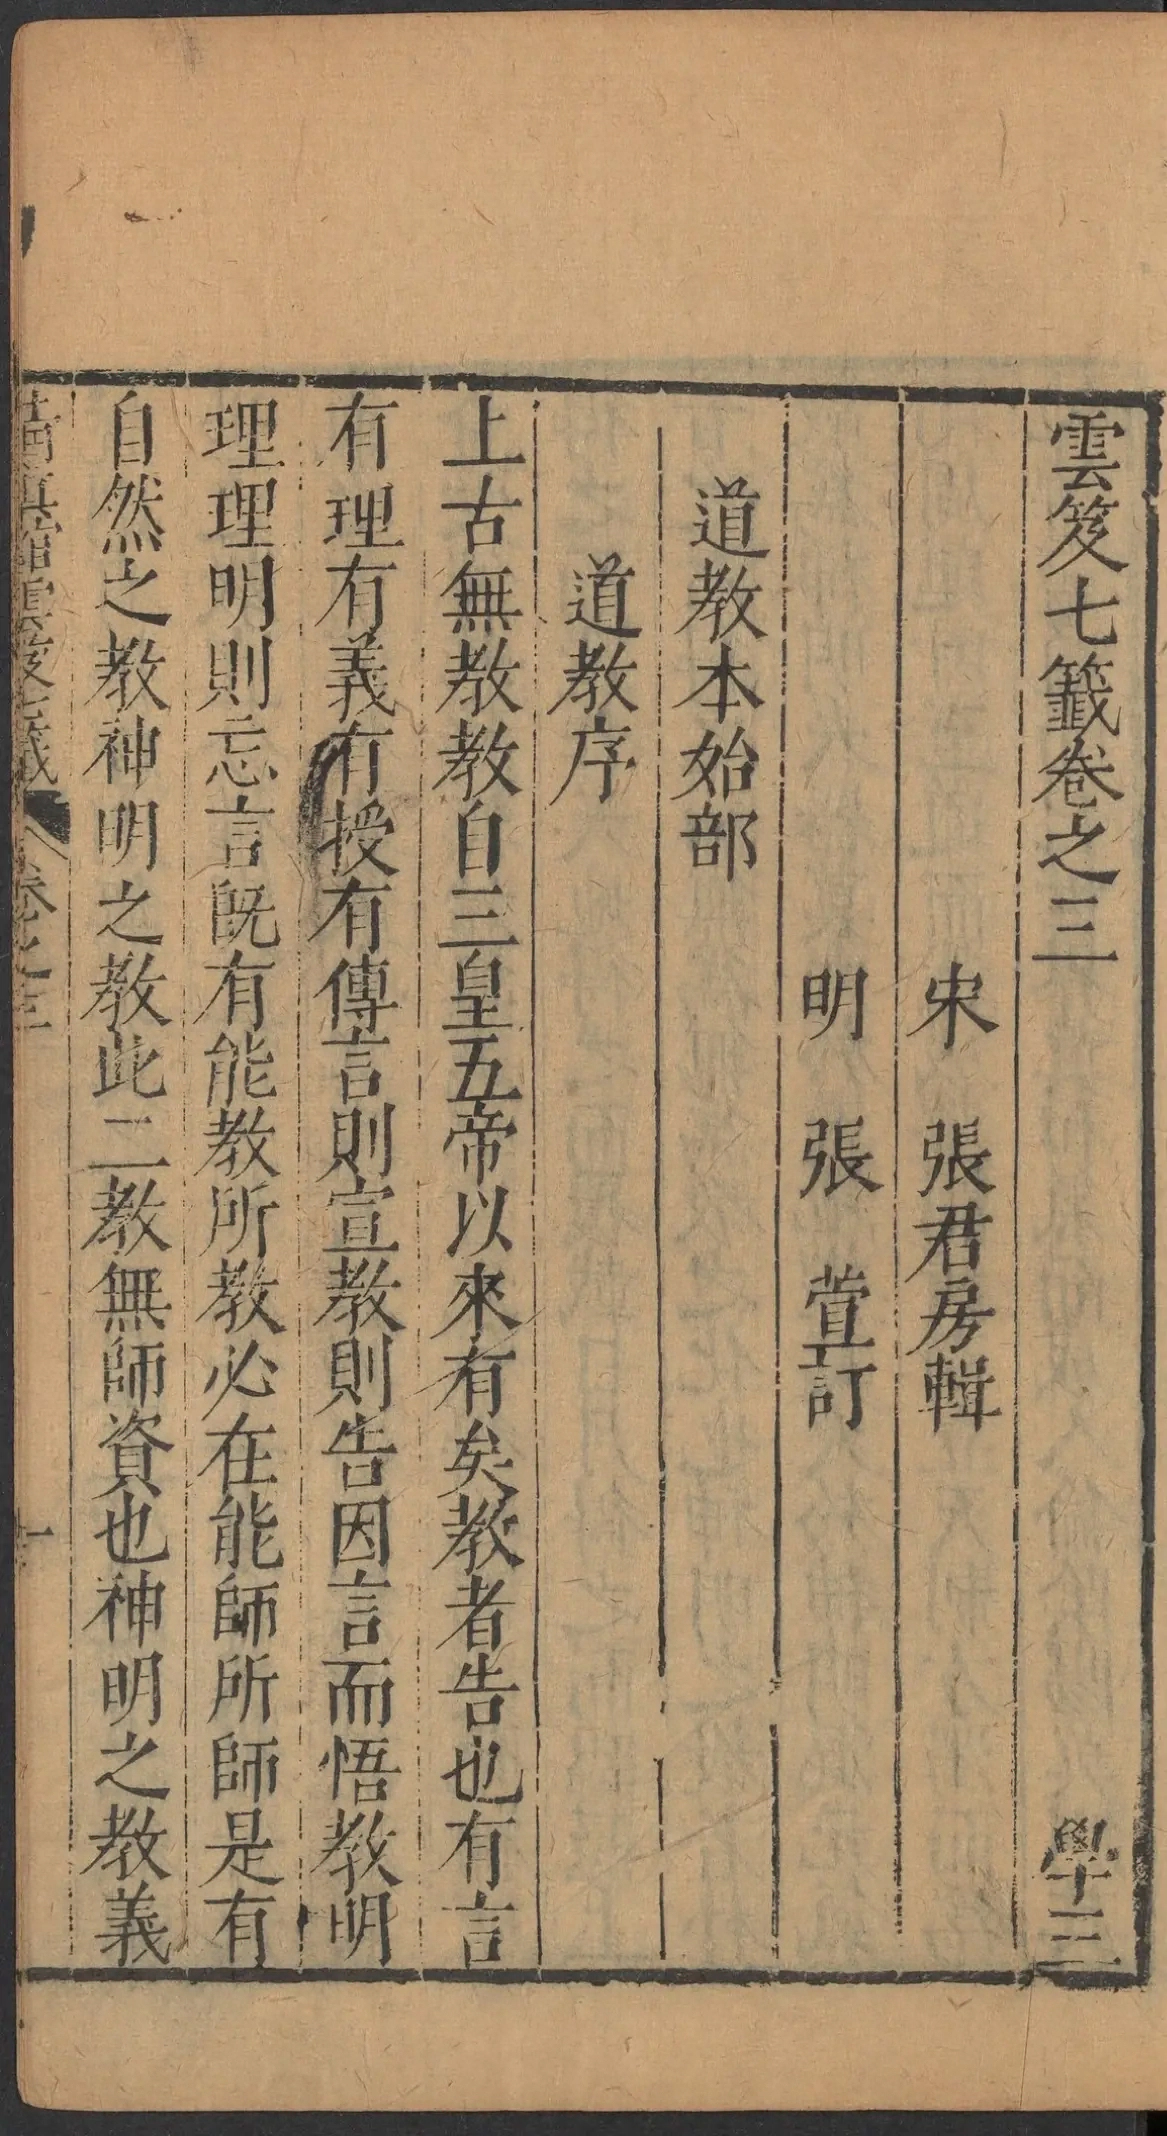 雲笈七籤卷之三 學三
宋 張君房輯
明 張 萱訂
道教本始部
道教序
上古無教教自三皇五帝以來有矣教者告也有言
有理有義有授有傳言則宣教則告因言而悟教明
理理明則忘言既有能教所教必在能師所師是有
自然之教神明之教此二教無師資也神明之教義
清真館雲笈七籤 卷之三 一